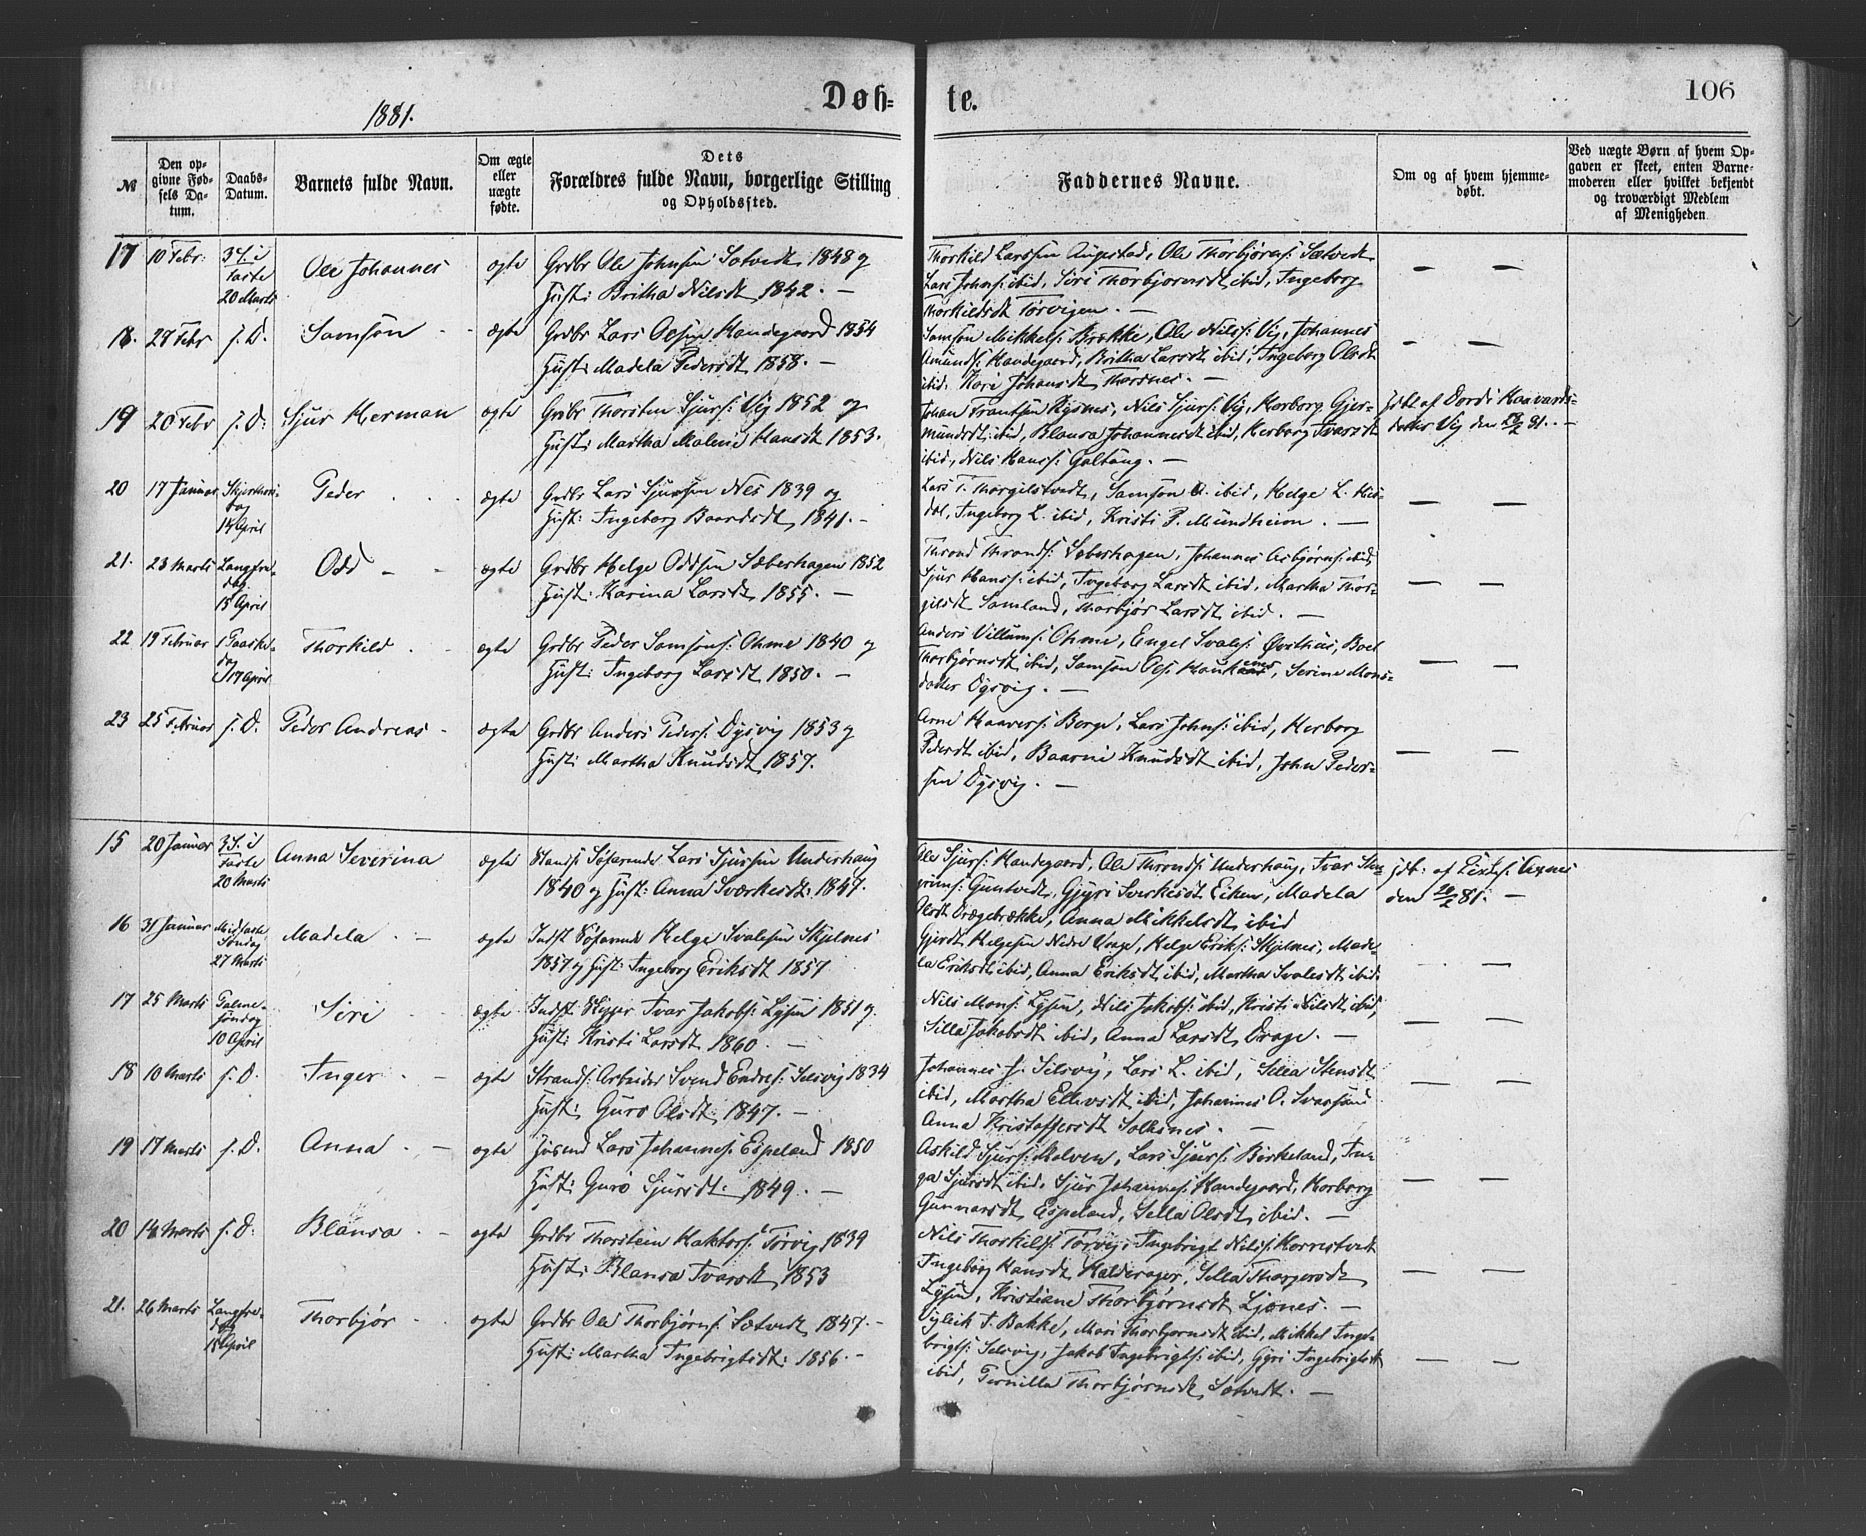 1881.
Døb-
te.
106
№
Den op-
givne Fød-
sels Da-
tum.
Daabs-
Datum.
Barnets fulde Navn.
Om ægte
eller
uægte
fødte.
Dets
Forældres fulde Navn, borgerlige Stilling
og Opholdssted.
Faddernes Navne.
Om og af hvem hjemme-
døbt.
Ved uægte Børn af hvem Op-
gaven er skeet, enten Barne-
moderen eller hvilket bekjendt
og troværdigt Medlem
af Menigheden
17 10 Febr: 3 S. i Faste 20 Marts Ole Johannes ægte Grdbr Ole Johnsen Sætvedt 1848 og
Hust: Britha Nilsdt 1842. —
Thorkild Larssen Augestad, Ole Thorbjørns: Sætvedt
Lars Johns: ibid, Siri Thorbjørnsdt ibid, Ingeborg
Thorkildsdt Tørvigen. —
18. 27 Febr s. D. Samson ægte Grdbr Lars Olsen Handegaard 1854
Hust: Madela Pedersdt 1858. —
Samson Mikkels: Brække, Ole Nilss: Vig, Johannes
Amunds: Handegaard, Britha Larsdt ibid, Ingeborg Olsdt
ibid. Kari Johansdt Thorsnes. —
19 20 Febr s. D: Sjur Herman ægte Grdbr Thorsten Sjurs: Vig 1852 og
Hust: Martha Malene Hansdt 1853.
Johan Frantsen Rysnes, Nils Sjurs: Vig, Herborg Gjer-
mundsdt ibid, Blansa Johannesdt ibid, Herborg Ivarsdt
ibid, Nils Hanss: Galtung. —
hdbt af Dordi Haavards-
datter Vig den 81. —
20 17 Januar Skjærthors-
dag
14 April Peder ægte Grdbr Lars Sjursen Nes 1839 og
Hust: Ingeborg Baardsdt 1841. —
Lars T. Thorgilstvedt, Samson ibid, Helge L.
Ingeborg L. ibid, Kristi P. Mundheim. —
21. 23 Marts Langfre-
dag.
15 April Odd ægte Grdbr Helge Oddsen Sæberhagen 1852
Hust: Karina Larsdt 1855. —
Thrond Thronds: Sæberhagen, Johannes Asbjørns: ibid,
Sjur Hanss: ibid, Ingeborg Larsdt ibid, Martha Thor-
gilsdt Samland, Thorbjør Larsdt ibid. —
22 19 Februar 1 Paaske-
dag
17 April Thorkild ægte Grdbr Peder Samsons: Ohme 1840 og
Hust: Ingeborg Larsdt 1850. —
Anders Villums: Ohme, Engel Svales: Øvsthus, Boel
Thorbjørnsdt ibid, Samson Ols: Serine Mons-
datter Dysvig. —
23 25 Februar s. D. Peder Andreas ægte Grdbr Anders Peders: Dysvig 1853 og
Hust: Martha Knudsdt 1857.
Arne Haavers: Berge, Lars Johns: ibid, Herborg
Pedersdt ibid, Baarni Knudsdt ibid, John Peder-
sen Dysvig. —
15 20 Januar 3 S. i
Faste
20 Marts Anna Severina ægte Søfarende Lars Sjursen Underhaug
1840 og Hust: Anna Sværkesdt: 1847.
Ole Sjurs: Handegaard, Ole Thronds: Underhaug, Ivar Stein-
grims: Guntvedt, Gjyri Sverkesdt Eiken, Madela
Olsdt Drægebrække, Anna Mikkelsdt ibid
hdb: af
den 81. —
16 31 Januar Midfaste
Søndag
27 Marts Madela ægte Indst Søfarende Helge Svalesen Skjelnes
1857 og Hust: Ingeborg Eriksdt 1857
Gjerdt Helgesen Nedre Drage, Helge Eriks: Skjelnes, Made-
la Eriksdt ibid, Anna Eriksdt ibid, Martha Svalesdt ibid.
17 25 Marts Palme-
søndag
10 April Siri ægte Indst: Skipper Ivar Jakobs: Lysen 1851 og
Hust: Kristi Larsdt 1860. —
Nils Mons: Lysen, Nils Jakobs: ibid, Kristi Nilsdt ibid,
Silla Jakobsdt ibid, Anna Larsdt Drage. —
18 10 Marts s. D. Inger ægte Strands: Arbeider Svend Endres: Selsvig 1834
Hust: Guro Olsdt: 1847. —
Johannes J. Selsvig, Lars L. ibid, Sella Stensdt
ibid, Martha Ellevsdt ibid, Johannes O. Svasand
Anna Kristoffersdt Solesnes. —
19 17 Marts s. D. Anna ægte Husmd Lars Johannes: Espeland 1850
Hust: Guro Sjursdt: 1849. —
Askild Sjurs: Malven, Lars Sjurs: Birkeland, In-
ga Sjursdt ibid, Sjur Johannes: Handegaard, Herborg
Gunnarsdt Espeland, Sella Olsdt ibid. —
20 14 Marts s. D: Blansa ægte Grdbr Thorstein Haktors: Tørvig 1839
Hust: Blansa Ivarsdt 1853
Nils Thorkilds: Tørvig, Ingebrigt Nilss: Herrestvedt
Ingeborg Hansdt Halderager, Sella Thorgersdt
Lysen, Kristiane Thorbjørnsdt Ljones. —
21. 26 Marts Langfre-
dag
15 April Thorbjør ægte Grdbr Ole Thorbjørns: Sætvedt 1847. —
Hust: Martha Ingebrigtsdt: 1856. —
Vigleik T. Bakke, Mari Thorbjørnsdt ibid, Mikkel Inge-
brigts: Selsvig, Jakob Ingebrigts: ibid, Gyri Ingebrigtsdt
ibid, Pernilla Thorbjørnsdt Sætvedt. —